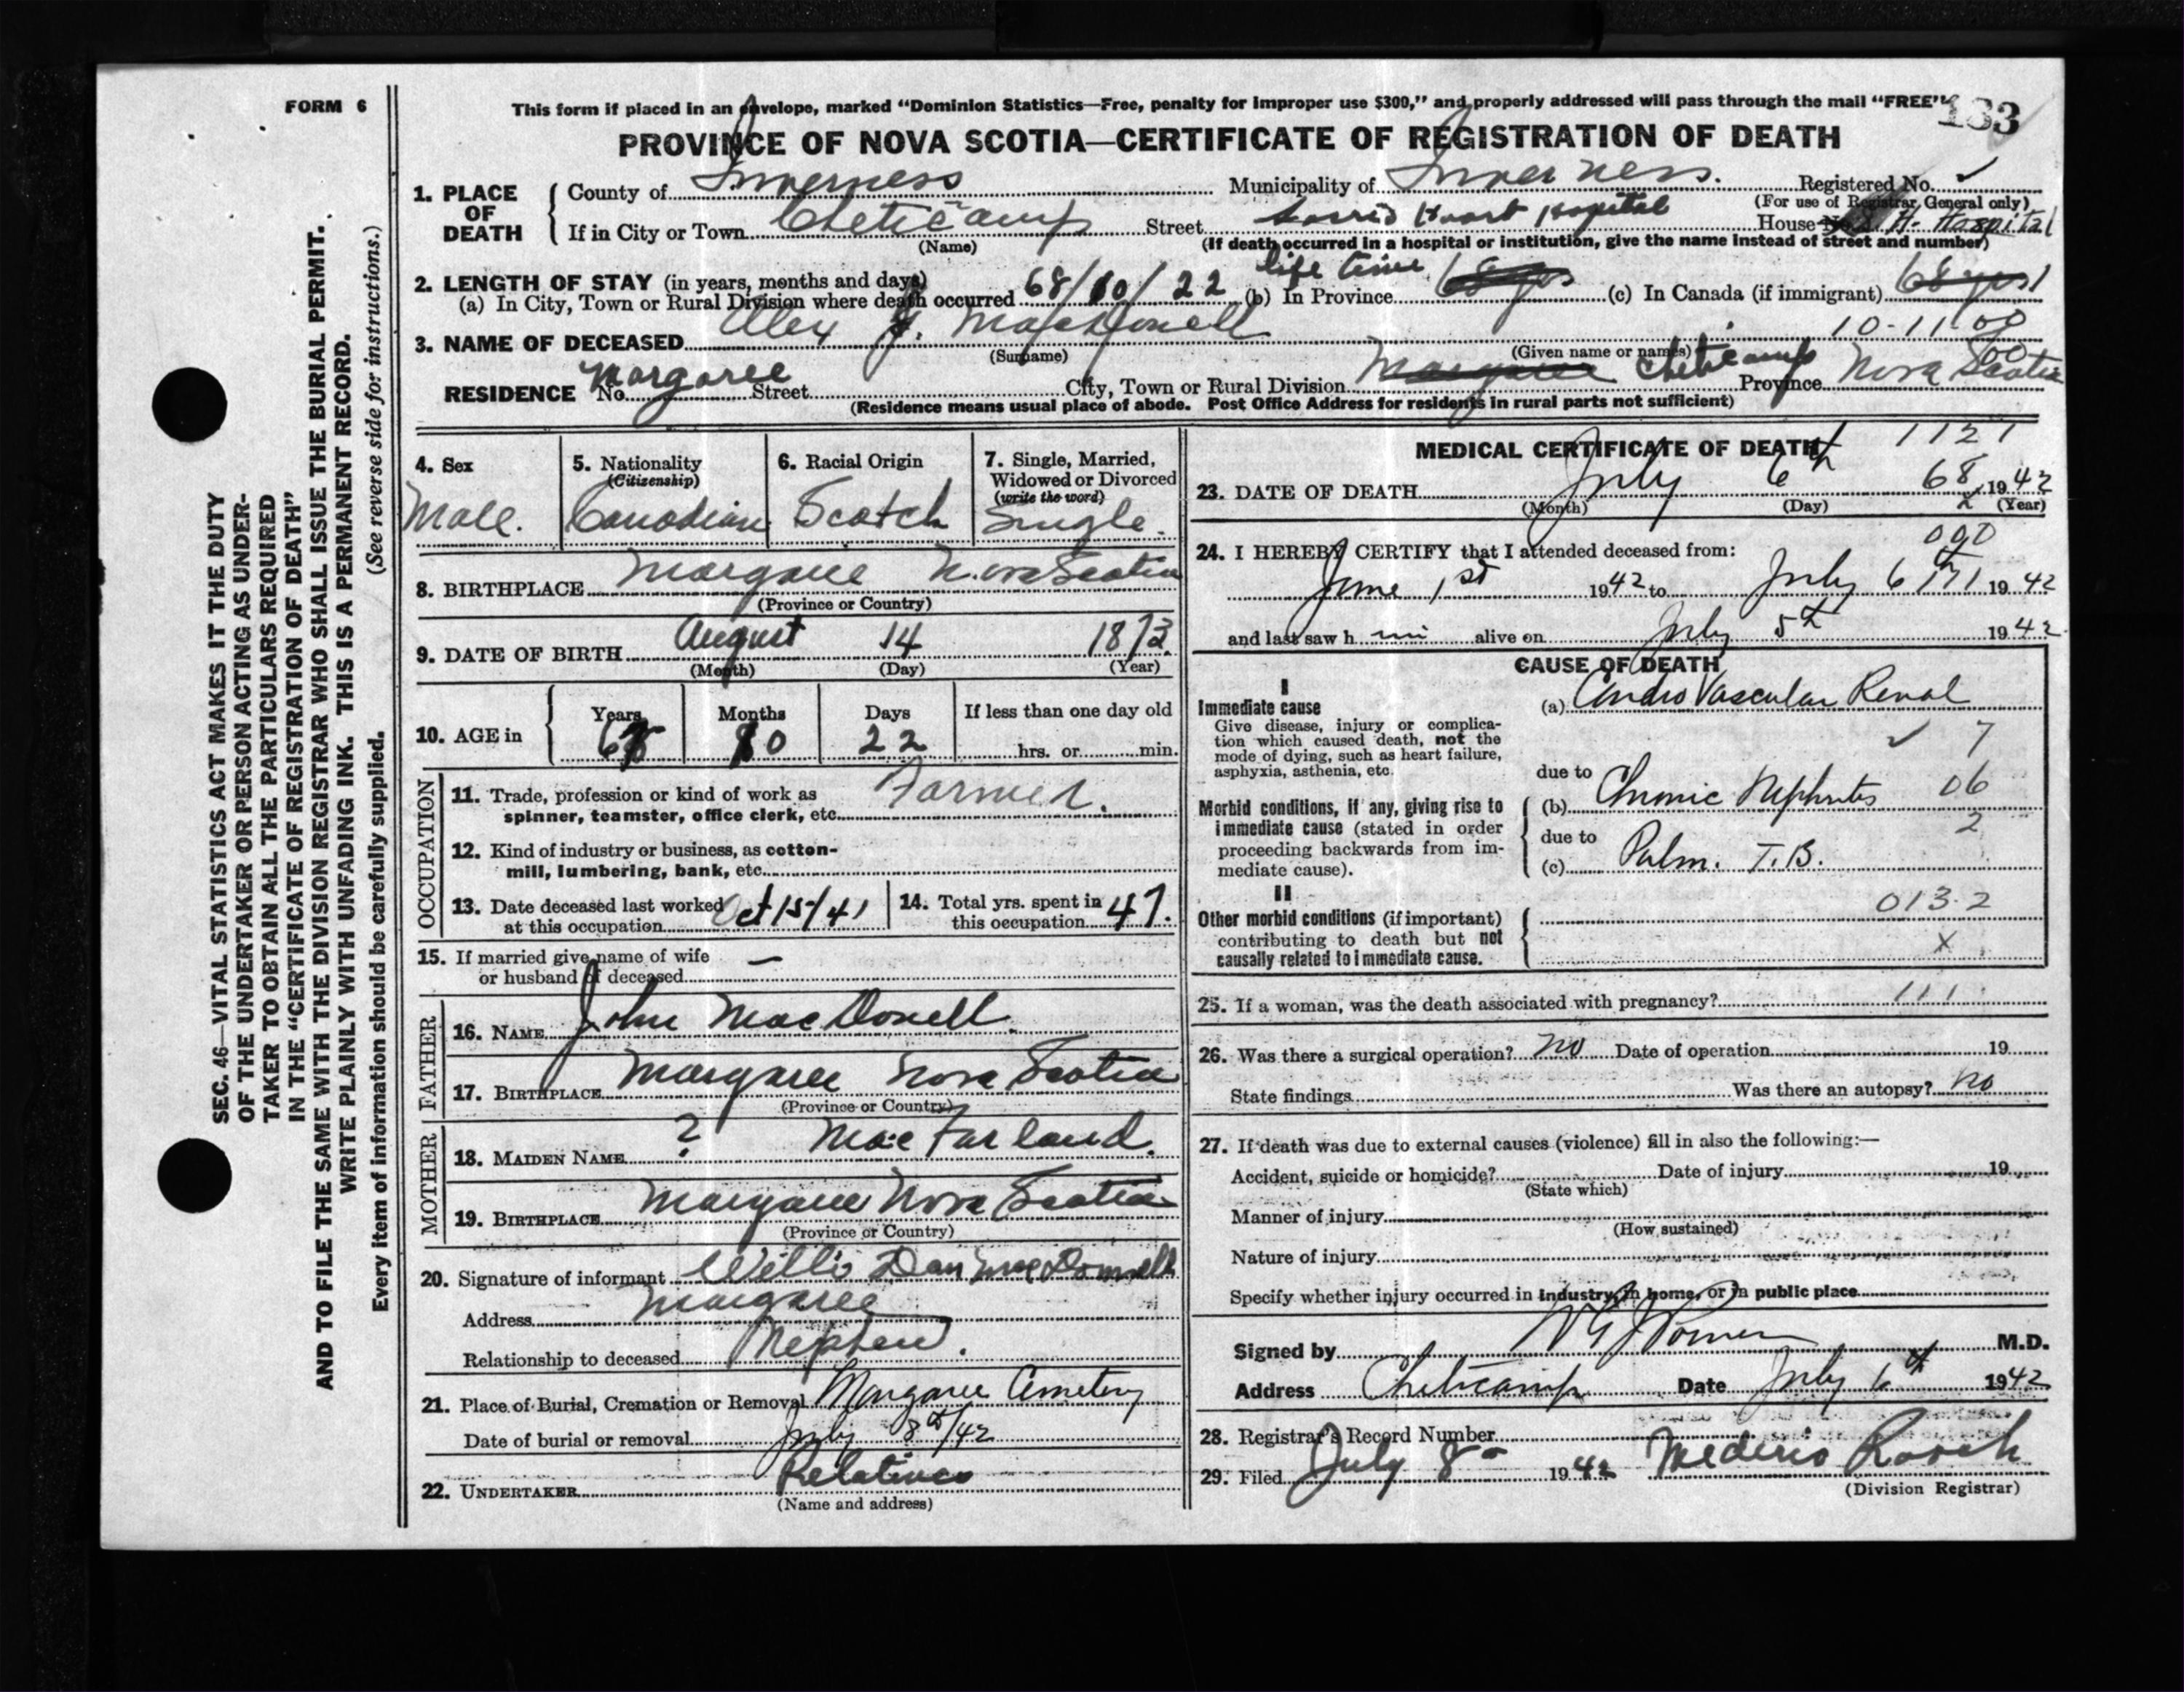 FORM 6
This form if placed in an envelope, marked "Dominion Statistics—Free, penalty for improper use $300," and properly addressed will pass through the mail "FREE"
183
PROVINCE OF NOVA SCOTIA—CERTIFICATE OF REGISTRATION OF DEATH
1. PLACE OF DEATH { County of Inverness Municipality of Inverness. Registered No.
(For use of Registrar General only)
If in City or Town Cheticamp Street Sacred Heart Hospital House No. S. H. Hospital
(Name) (If death occurred in a hospital or institution, give the name instead of street and number)
2. LENGTH OF STAY (in years, months and days)
(a) In City, Town or Rural Division where death occurred 68/10/22 (b) In Province life time 68 yrs (c) In Canada (if immigrant) 68 yrs
3. NAME OF DECEASED Alex J. MacDonell 10-11-00
(Surname) (Given name or names) 00
RESIDENCE No. Margaree Street City, Town or Rural Division Margaree Cheticamp Province Nova Scotia
(Residence means usual place of abode. Post Office Address for residents in rural parts not sufficient)
4. Sex
Male.
5. Nationality
(Citizenship)
Canadian
6. Racial Origin
Scotch
7. Single, Married, Widowed or Divorced
(write the word)
Single.
8. BIRTHPLACE Margaree Nova Scotia
(Province or Country)
9. DATE OF BIRTH August 14 1873.
(Month) (Day) (Year)
10. AGE in { Years Months Days If less than one day old
68 10 22 hrs. or min.
OCCUPATION
11. Trade, profession or kind of work as spinner, teamster, office clerk, etc. Farmer.
12. Kind of industry or business, as cotton-mill, lumbering, bank, etc.
13. Date deceased last worked at this occupation Oct 15/41
14. Total yrs. spent in this occupation 47.
15. If married give name of wife or husband of deceased —
FATHER
16. NAME John MacDonell.
17. BIRTHPLACE Margaree Nova Scotia
(Province or Country)
MOTHER
18. MAIDEN NAME ? MacFarland.
19. BIRTHPLACE Margaree Nova Scotia
(Province or Country)
20. Signature of informant Willis Dan MacDonnell
Address Margaree
Relationship to deceased Nephew.
21. Place of Burial, Cremation or Removal Margaree Cemetery
Date of burial or removal July 8th/42
22. UNDERTAKER Relatives
(Name and address)
MEDICAL CERTIFICATE OF DEATH 1121
23. DATE OF DEATH July 6th 68 1942
(Month) (Day) 2 (Year)
24. I HEREBY CERTIFY that I attended deceased from: 000
June 1st 1942 to July 6th 1942
and last saw him alive on July 5th 1942
CAUSE OF DEATH
I
Immediate cause
Give disease, injury or complication which caused death, not the mode of dying, such as heart failure, asphyxia, asthenia, etc.
(a) Cardio Vascular Renal
7
due to
Morbid conditions, if any, giving rise to immediate cause (stated in order proceeding backwards from immediate cause).
(b) Chronic Nephritis 06
due to 2
(c) Pulm. T.B.
II
Other morbid conditions (if important) contributing to death but not causally related to immediate cause.
013.2
X
25. If a woman, was the death associated with pregnancy? 111
26. Was there a surgical operation? No Date of operation 19
State findings Was there an autopsy? no
27. If death was due to external causes (violence) fill in also the following:—
Accident, suicide or homicide? Date of injury 19
(State which)
Manner of injury
(How sustained)
Nature of injury
Specify whether injury occurred in industry, in home, or in public place
Signed by M.D.
Address Cheticamp Date July 6th 1942
28. Registrar's Record Number
29. Filed July 8 1942 Mederic Roach
(Division Registrar)
SEC. 46—VITAL STATISTICS ACT MAKES IT THE DUTY
OF THE UNDERTAKER OR PERSON ACTING AS UNDER-
TAKER TO OBTAIN ALL THE PARTICULARS REQUIRED
IN THE "CERTIFICATE OF REGISTRATION OF DEATH"
AND TO FILE THE SAME WITH THE DIVISION REGISTRAR WHO SHALL ISSUE THE BURIAL PERMIT.
WRITE PLAINLY WITH UNFADING INK. THIS IS A PERMANENT RECORD.
Every item of information should be carefully supplied. (See reverse side for instructions.)